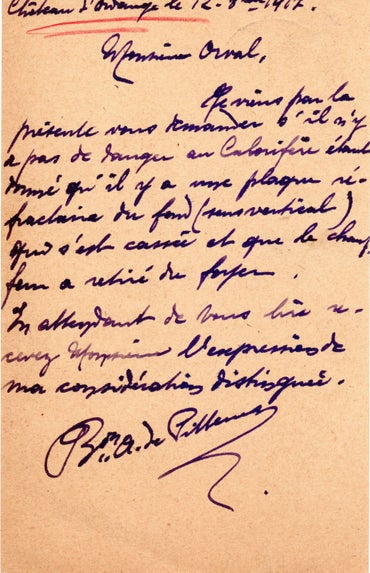 Château d'Ordange le 12-8bre 1917.
Monsieur Orval,
Je viens par la
présente vous demander s'il n'y
a pas de danger au Calorifère étant
donné qu'il y a une plaque ré-
fractaire du fond (sens vertical)
qui s'est cassée et que le chauf-
feur a retiré du foyer.
En attendant de vous lire re-
cevez Monsieur l'expression de
ma considération distinguée.
Bon A. de Pitteurs